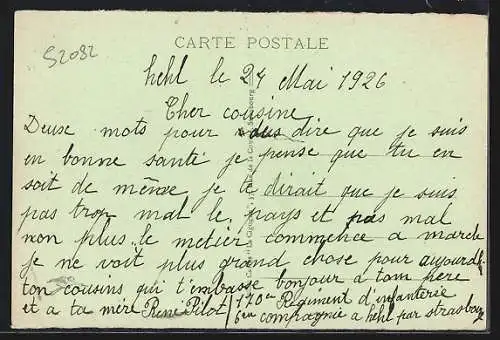 CARTE POSTALE
S2032
Kehl le 24 Mai 1926
Cher cousine
Deuse mots pour vous dire que je suis
en bonne santé je pense que tu en
soit de même je te dirait que je suis
pas trop mal le pays et pas mal
non plus le metier commence a march
je ne voit plus grand chose pour aujourd
ton cousins qui t'embasse bonjour a tom père
et a ta mére René Pilot
170em Regiment d'infanterie
6em compagnie a Kehl par strasbourg